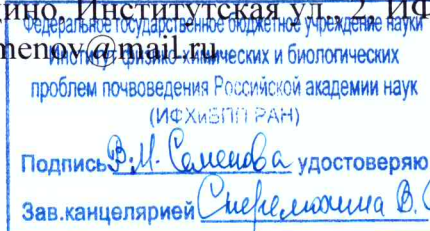 ино, Институтская ул., 2, ИФ
menov@mail.ru
Федеральное государственное бюджетное учреждение науки
Институт физико-химических и биологических
проблем почвоведения Российской академии наук
(ИФХиБПП РАН)
Подпись В.М. Семенова удостоверяю
Зав.канцелярией